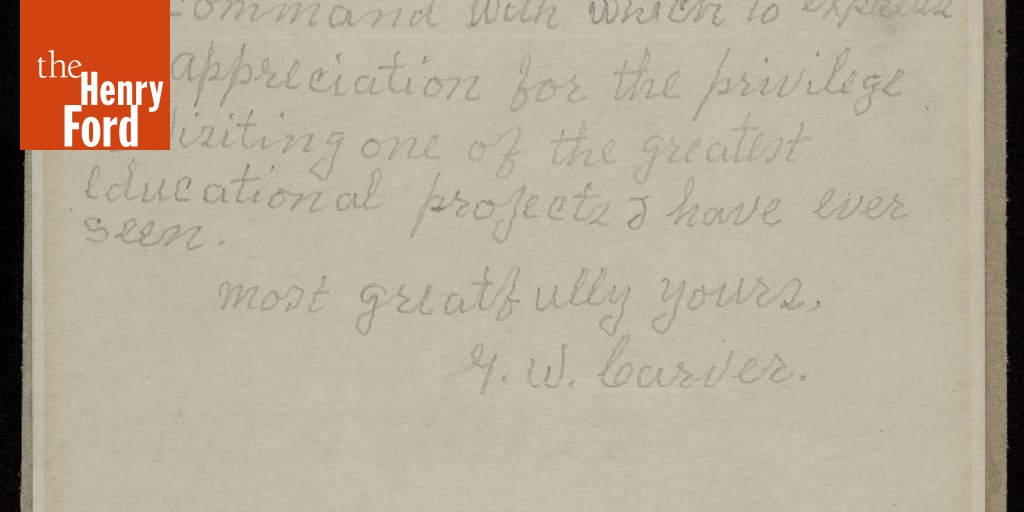 the
Henry
Ford
command with which to express
appreciation for the privilege
visiting one of the greatest
educational projects I have ever
seen.
most greatfully yours,
G. W. Carver.